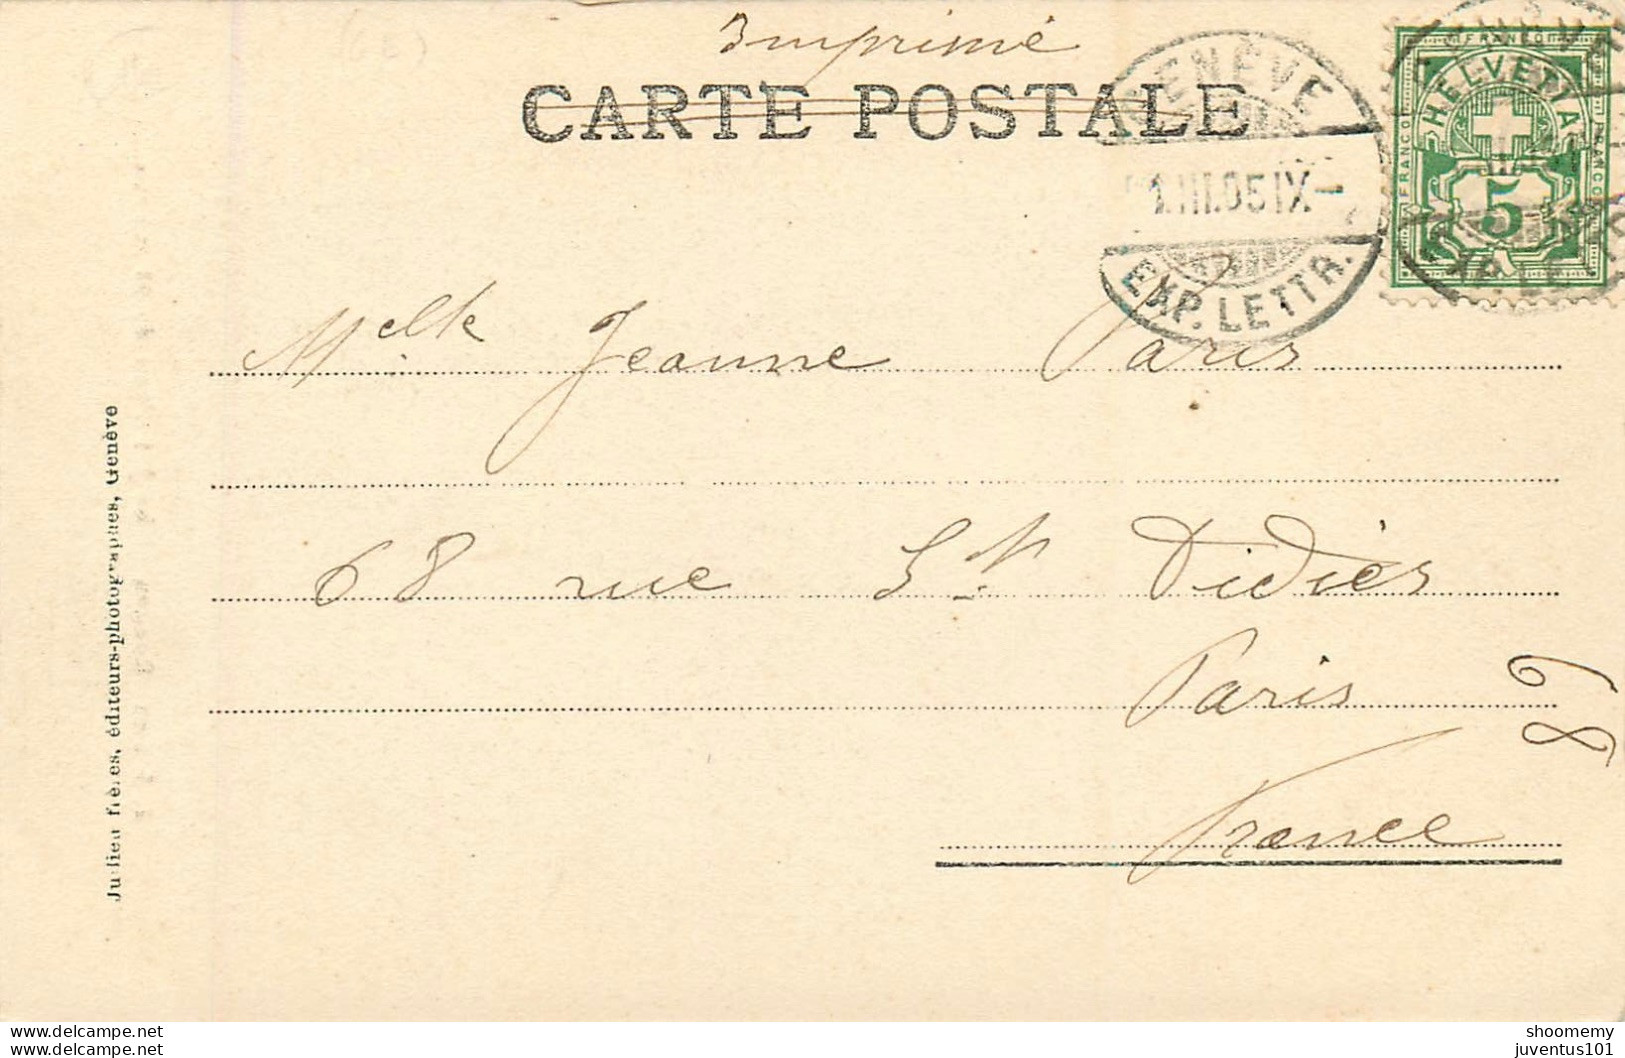 Imprimé
CARTE POSTALE
GENÈVE
1.III.05 IX-
EXP. LETTR.
FRANCO
HELVETIA
FRANCO
FRANCO
5
EXP. LETTR.
Melle Jeanne Paris
68 rue St Didier
Paris
68
France
Jullien frères, éditeurs-photographes, Genève
delcampe.net
delcampe.net
shoomemy
juventus101